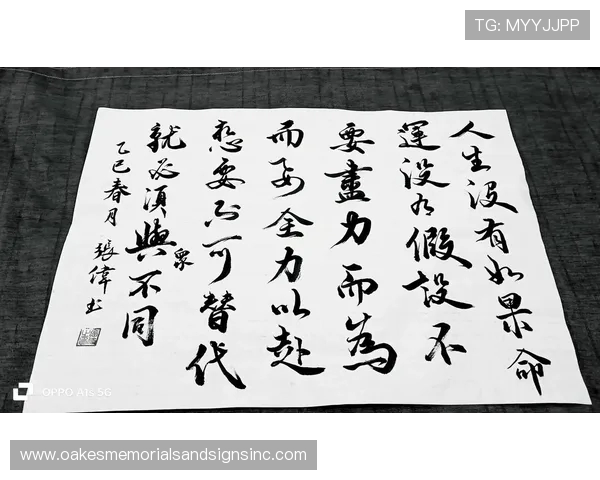 TG: MYYJJPP
人生没有如果命
運没有假設不
要盡力而為
而要全力以赴
想要不可替代
就必須與眾不同
乙巳春月 張偉书
OPPO A1s 5G
www.oakesmemorialsandsignsinc.com